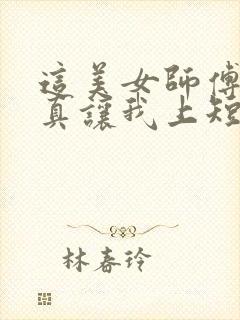 這美女師傅
真讓我上短
林春玲